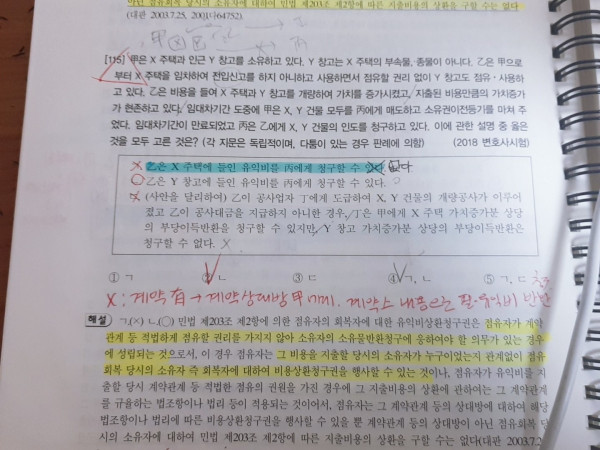 아닌 점유회복 당시의 소유자에 대하여 민법 제203조 제2항에 따른 지출비용의 상환을 구할 수는 없다
(대판 2003.7.25, 2001다64752).
甲 X Y 乙
丙
[115] 甲은 X 주택과 인근 Y 창고를 소유하고 있다. Y 창고는 X 주택의 부속물, 종물이 아니다. 乙은 甲으로
부터 X 주택을 임차하여 전입신고를 하지 아니하고 사용하면서 점유할 권리 없이 Y 창고도 점유·사용하
고 있다. 乙은 비용을 들여 X 주택과 Y 창고를 개량하여 가치를 증가시켰고, 지출된 비용만큼의 가치증가
가 현존하고 있다. 임대차기간 도중에 甲은 X, Y 건물 모두를 丙에게 매도하고 소유권이전등기를 마쳐 주
었다. 임대차기간이 만료되었고 丙은 乙에게 X, Y 건물의 인도를 청구하고 있다. 이에 관한 설명 중 옳은
것을 모두 고른 것은? (각 지문은 독립적이며, 다툼이 있는 경우 판례에 의함) (2018 변호사시험)
乙은 X 주택에 들인 유익비를 丙에게 청구할 수 없다
乙은 Y 창고에 들인 유익비를 丙에게 청구할 수 있다. ○
(사안을 달리하여) 乙이 공사업자 丁에게 도급하여 X, Y 건물의 개량공사가 이루어
졌고 乙이 공사대금을 지급하지 아니한 경우, 丁은 甲에게 X 주택 가치증가분 상당
의 부당이득반환을 청구할 수 있지만, Y 창고 가치증가분 상당의 부당이득반환은
청구할 수 없다. X
① ㄱ ② ㄴ ③ ㄷ ④ ㄱ, ㄴ ⑤ ㄱ, ㄷ
X : 계약 有 → 계약상대방 甲에게. 계약소 내용으로 필·유익비 반환
해설 ㄱ.(×) ㄴ.(○) 민법 제203조 제2항에 의한 점유자의 회복자에 대한 유익비상환청구권은 점유자가 계약
관계 등 적법하게 점유할 권리를 가지지 않아 소유자의 소유물반환청구에 응하여야 할 의무가 있는 경우
에 성립되는 것으로서, 이 경우 점유자는 그 비용을 지출할 당시의 소유자가 누구이었는지 관계없이 점유
회복 당시의 소유자 즉 회복자에 대하여 비용상환청구권을 행사할 수 있는 것이나, 점유자가 유익비를 지
출할 당시 계약관계 등 적법한 점유의 권원을 가진 경우에 그 지출비용의 상환에 관하여는 그 계약관계
를 규율하는 법조항이나 법리 등이 적용되는 것이어서, 점유자는 그 계약관계 등의 상대방에 대하여 해당
법조항이나 법리에 따른 비용상환청구권을 행사할 수 있을 뿐 계약관계 등의 상대방이 아닌 점유회복 당
시의 소유자에 대하여 민법 제203조 제2항에 따른 지출비용의 상환을 구할 수는 없다(대판 2003.7.2